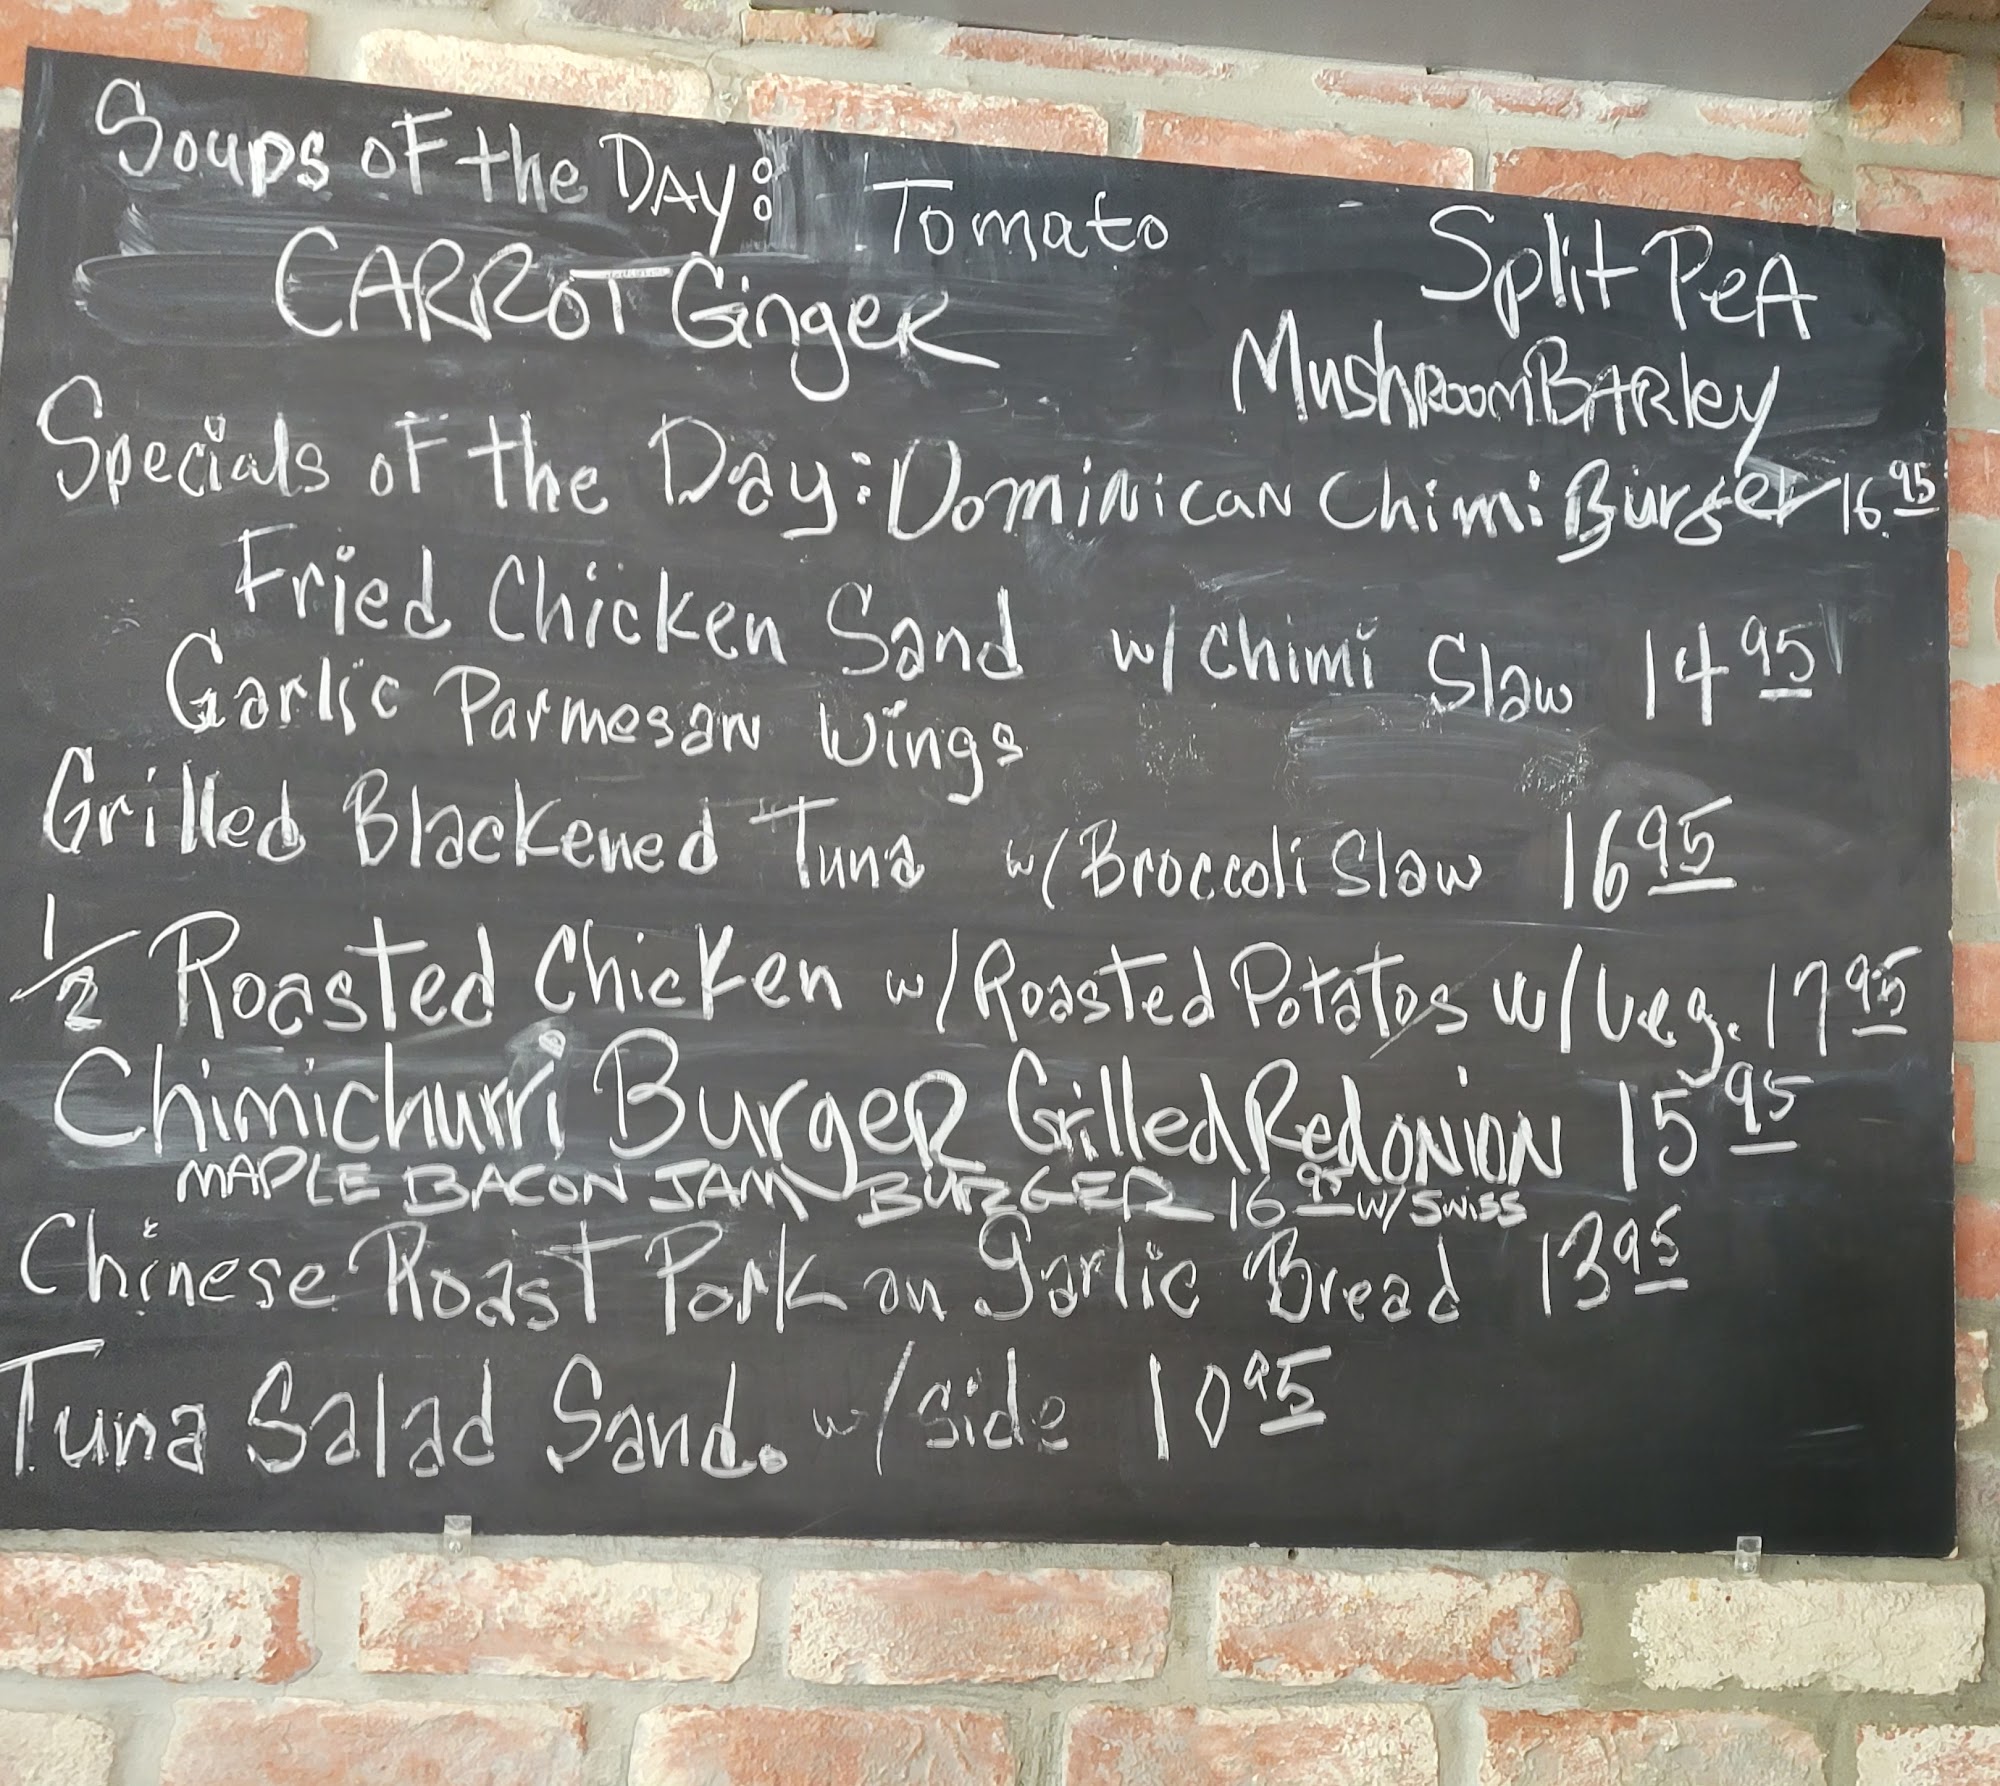 Soups of the Day: Tomato Split Pea
Carrot Ginger Mushroom Barley
Specials of the Day: Dominican Chimi Burger 16.95
Fried Chicken Sand w/ Chimi Slaw 14 95
Garlic Parmesan Wings
Grilled Blackened Tuna w/ Broccoli Slaw 16 95
1/2 Roasted Chicken w/ Roasted Potatos w/ Veg. 17 95
Chimichurri Burger Grilled Red onion 15 95
MAPLE BACON JAM BURGER 16 95 w/ SWISS
Chinese Roast Pork on garlic Bread 13 95
Tuna Salad Sand. w/ side 10 95